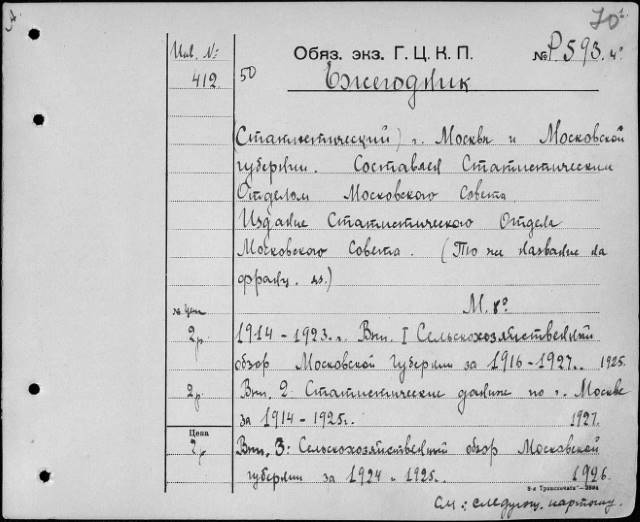 70²
Инв. №
412
50
Обяз. экз. Г. Ц. К. П.
№ Р.593. 4°
Ежегодник
(Статистический) г. Москвы и Московской
губернии. Составлен Статистическим
Отделом Московского Совета
Издание Статистического Отдела
Московского Совета. (То же название на
франц. яз.)
М. 8°
№ Цена
2р. 1914 - 1923. г. Вып. I Сельскохозяйственный
обзор Московской Губернии за 1916 - 1927.. 1925.
2р. Вып. 2. Статистические данные по г. Москве
за 1914 - 1925г. 1927.
Цена
2р Вып. 3: Сельскохозяйственный обзор Московской
губернии за 1924 и 1925. 1926.
См.: следующ. карточку.